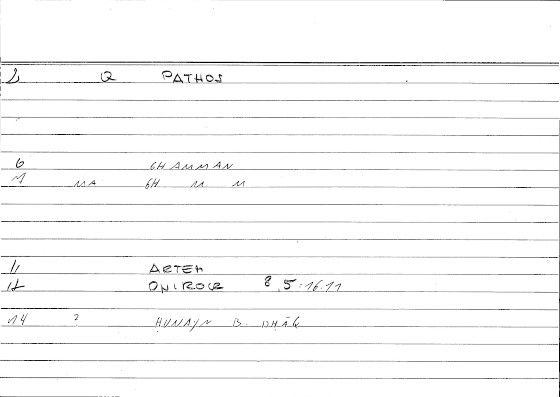 2 Q PATHOS
6 GHAMMAN
7 MA GH M M
11 ARTEM
12 ONIROCR 8 5:16.11
14 ? HUNAYN B.